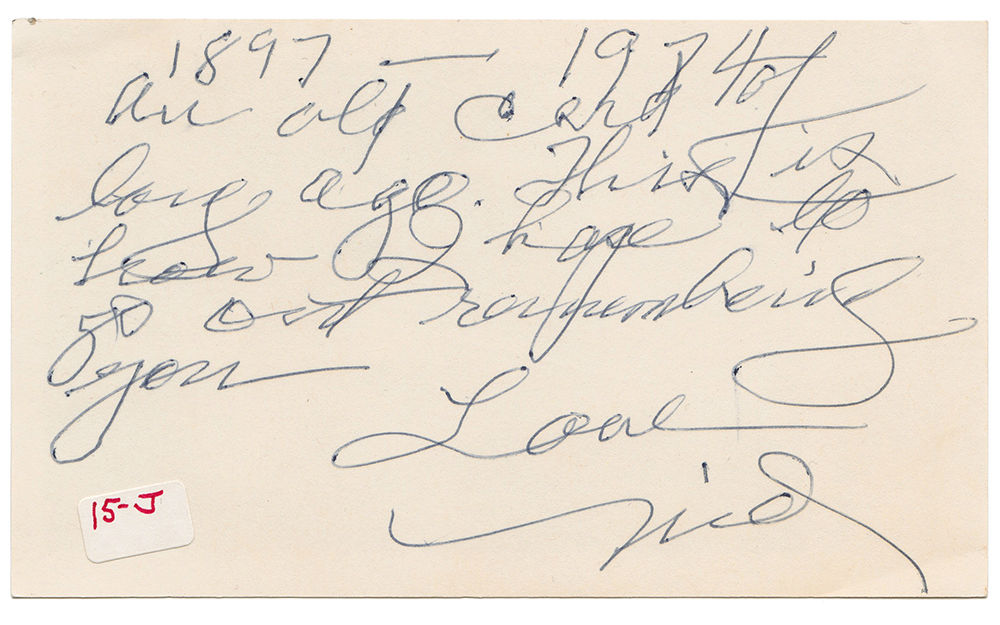 1897 — 1974
An old card of
long age. This is
how I hope to
go out remembering
you
Love
15-J